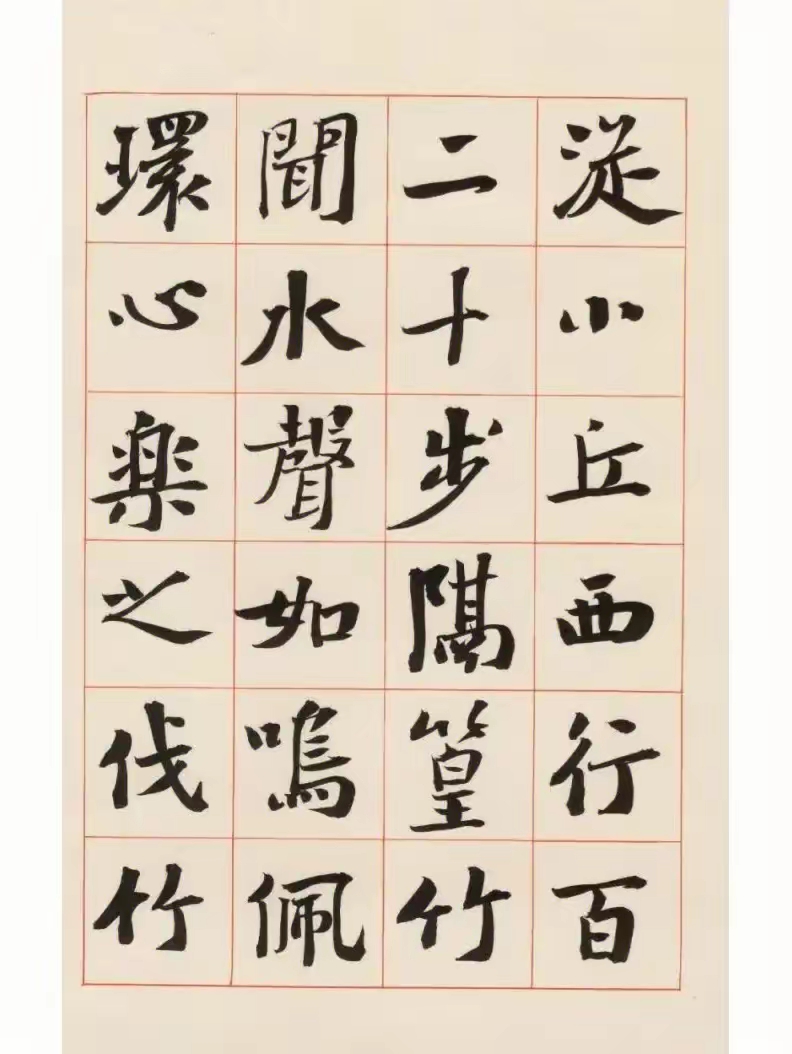 從小丘西行百
二十步隔篁竹
聞水聲如鳴佩
環心楽之伐竹